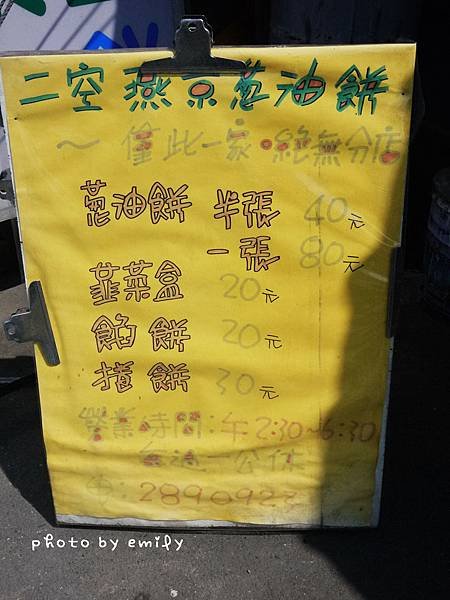 二空燕京葱油餅
~僅此一家·絕無分店
葱油餅 半張 40元
一張 80元
韮菜盒 20元
餡餅 20元
揹餅 30元
營業時間:午2:30~6:30
每週一公休
2890923
photo by emily